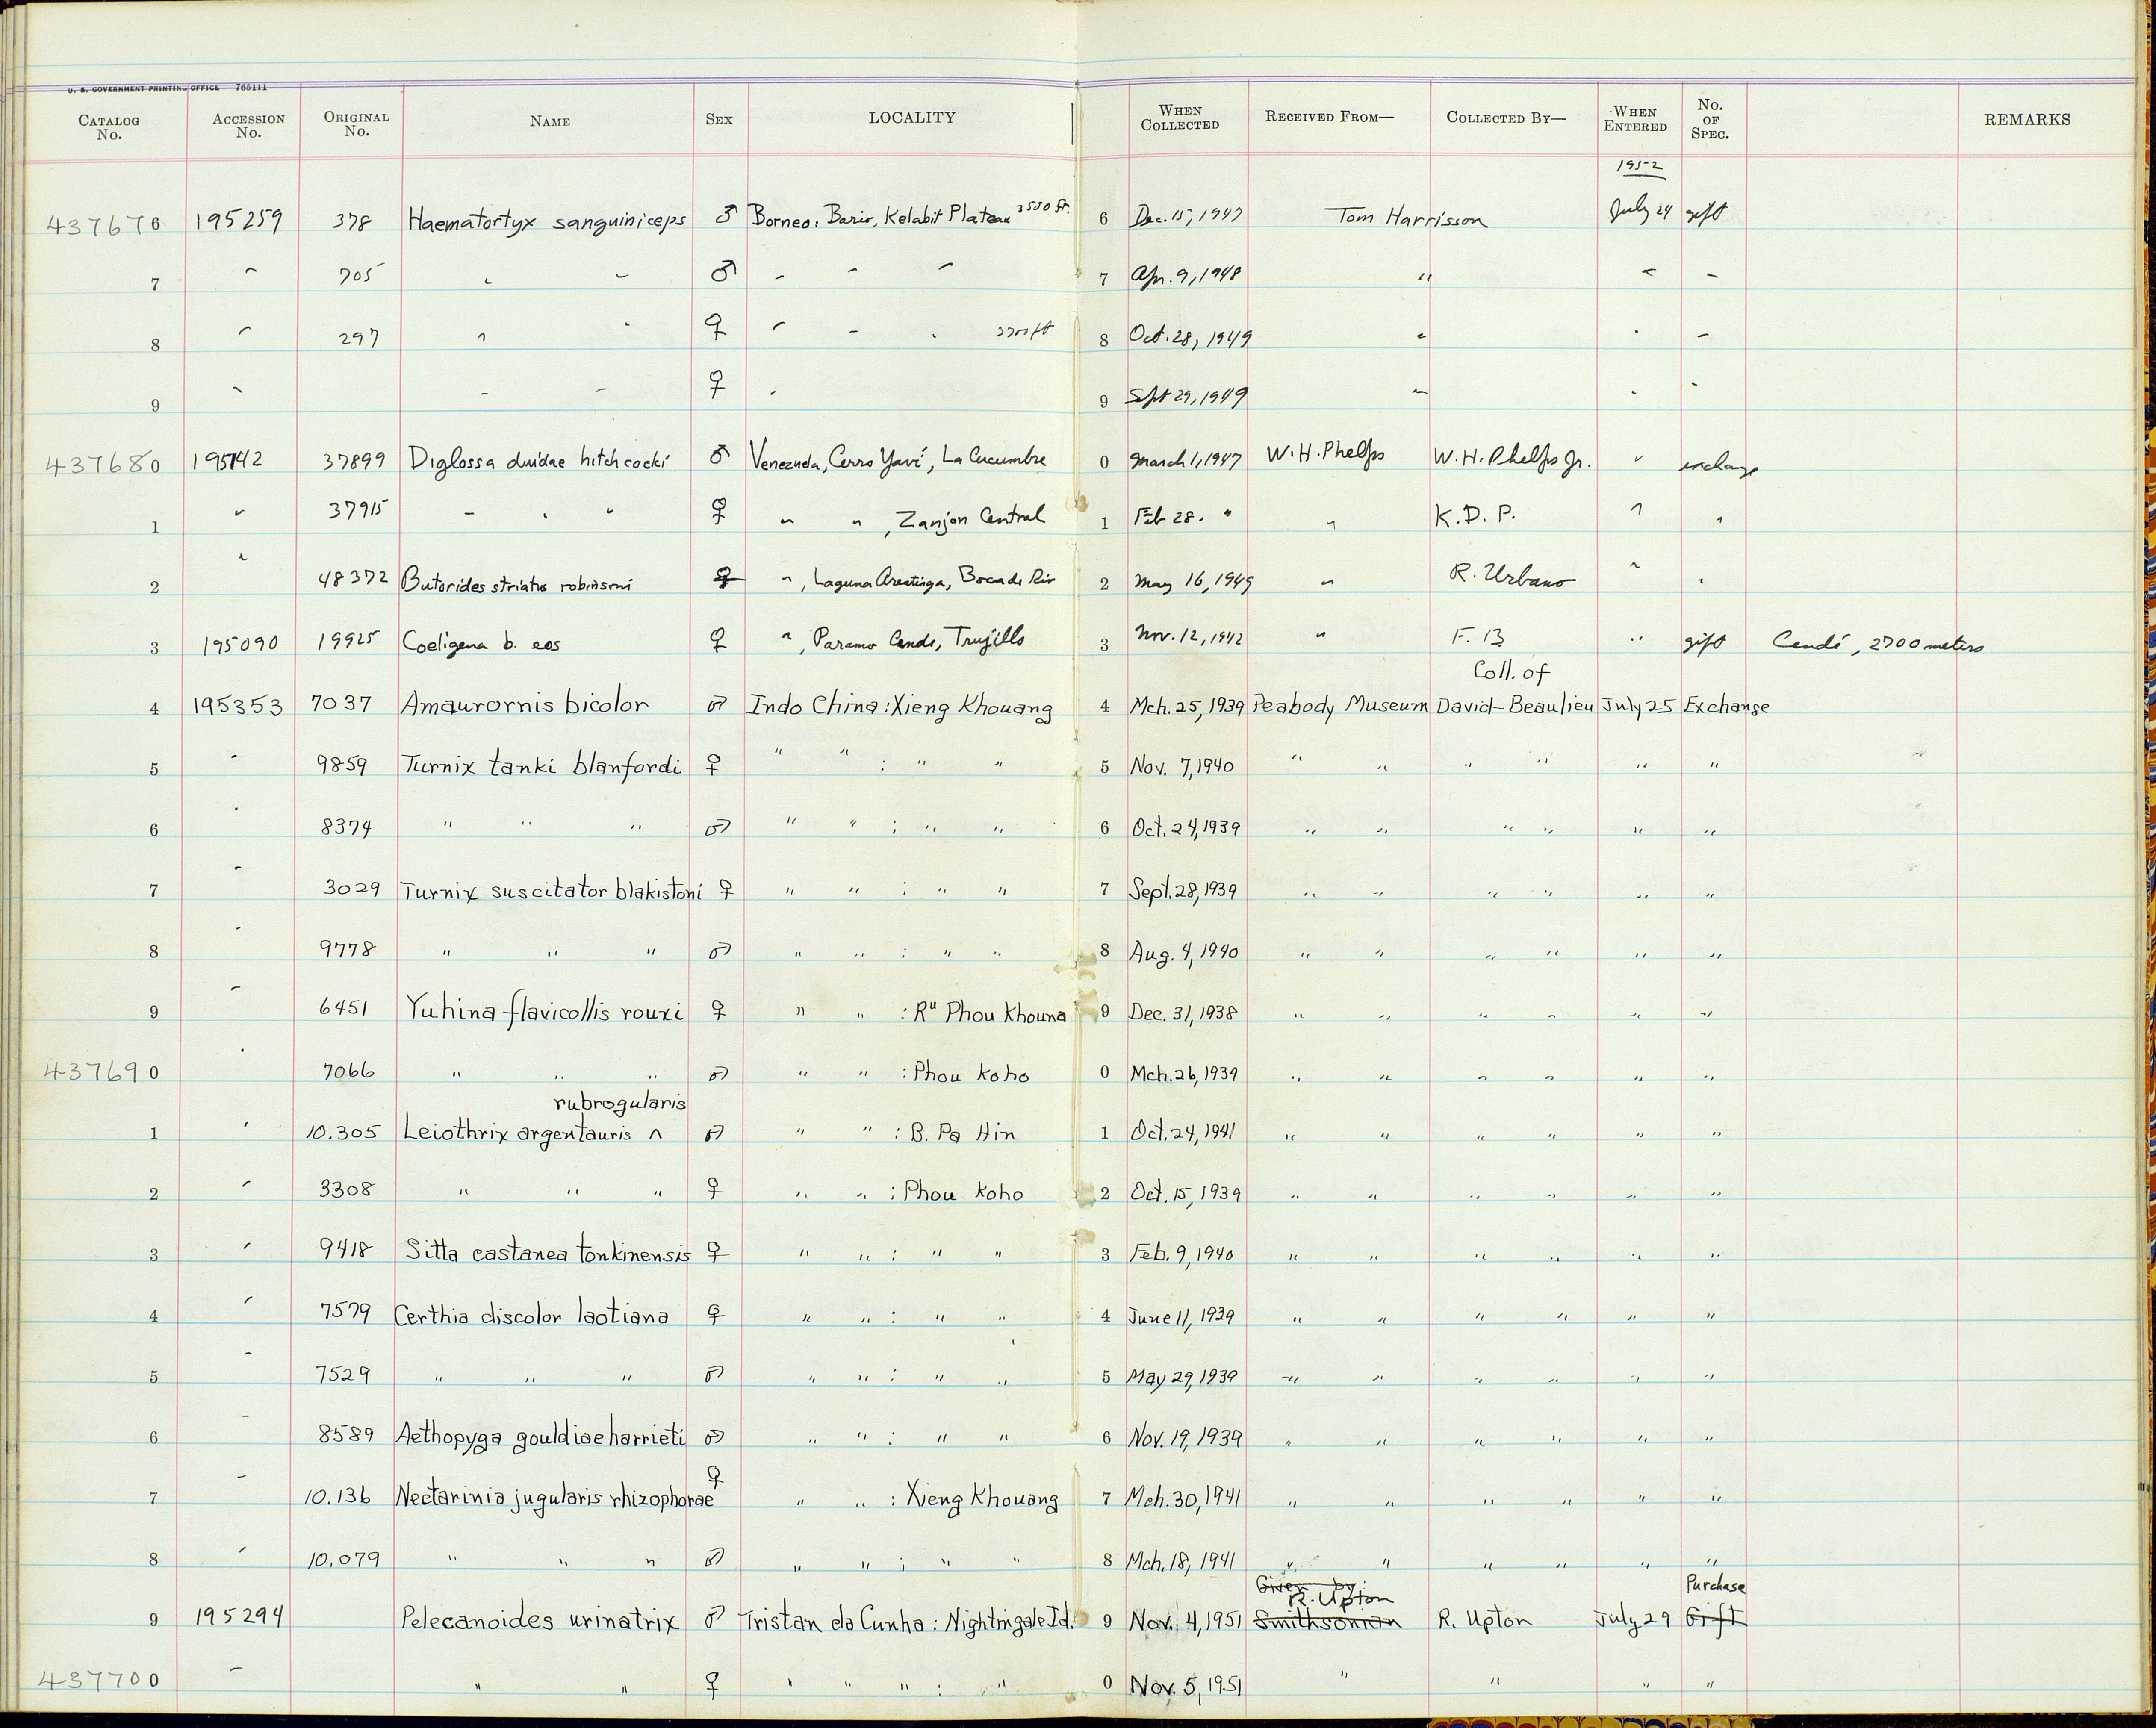 U. S. GOVERNMENT PRINTING OFFICE 765111
CATALOG No. ACCESSION No. ORIGINAL No. NAME SEX LOCALITY WHEN COLLECTED RECEIVED FROM— COLLECTED BY— WHEN ENTERED No. OF SPEC. REMARKS
1952
437676 195259 378 Haematortyx sanguiniceps ♂ Borneo: Bario, Kelabit Plateau 3550 ft. 6 Dec. 15, 1947 Tom Harrisson July 24 gift
7 " 705 " " ♂ " " " 7 Apr. 9, 1948 " " "
8 " 297 " " ♀ " " " 3700 ft 8 Oct. 28, 1949 " " "
9 " " " ♀ " 9 Sept 29, 1949 " " "
437680 195142 37899 Diglossa duidae hitchcocki ♂ Venezuela, Cerro Yaví, La Cucumbre 0 March 1, 1947 W. H. Phelps W. H. Phelps Jr. " exchange
1 " 37915 " " " ♀ " " , Zanjon Central 1 Feb 28. " " K. D. P. " "
2 " 48372 Butorides striatus robinsoni ♀ " , Laguna Arestinga, Boca de Rio 2 May 16, 1949 " R. Urbano " "
3 195090 19925 Coeligena b. eos ♀ " , Paramo Cende, Trujillo 3 Nov. 12, 1942 " F. B. " gift Cendé, 2700 meters
Coll. of
4 195353 7037 Amaurornis bicolor ♂ Indo China: Xieng Khouang 4 Mch. 25, 1939 Peabody Museum David-Beaulieu July 25 Exchange
5 " 9859 Turnix tanki blanfordi ♀ " " : " " 5 Nov. 7, 1940 " " " " " "
6 " 8374 " " " ♂ " " : " " 6 Oct. 24, 1939 " " " " " "
7 " 3029 Turnix suscitator blakistoni ♀ " " : " " 7 Sept. 28, 1939 " " " " " "
8 " 9778 " " " ♂ " " : " " 8 Aug. 4, 1940 " " " " " "
9 " 6451 Yuhina flavicollis rouxi ♀ " " : Rᵘ Phou Khouna 9 Dec. 31, 1938 " " " " " "
437690 " 7066 " " " ♂ " " : Phou Koho 0 Mch. 26, 1939 " " " " " "
rubrogularis
1 " 10.305 Leiothrix argentauris ^ ♂ " " : B. Pa Hin 1 Oct. 24, 1941 " " " " " "
2 " 3308 " " " ♀ " " : Phou Koho 2 Oct. 15, 1939 " " " " " "
3 " 9418 Sitta castanea tonkinensis ♀ " " : " " 3 Feb. 9, 1940 " " " " " "
4 " 7579 Certhia discolor laotiana ♀ " " : " " 4 June 11, 1939 " " " " " "
5 " 7529 " " " ♂ " " : " " 5 May 29, 1939 " " " " " "
6 " 8589 Aethopyga gouldiae harrieti ♂ " " : " " 6 Nov. 19, 1939 " " " " " "
7 " 10.136 Nectarinia jugularis rhizophorae ♀ " " : Xieng Khouang 7 Mch. 30, 1941 " " " " " "
8 " 10.079 " " " ♂ " " : " " 8 Mch. 18, 1941 " " " " " "
Given by Purchase
R. Upton
9 195294 Pelecanoides urinatrix ♂ Tristan da Cunha: Nightingale Id. 9 Nov. 4, 1951 Smithsonian R. Upton July 29 Gift
437700 " " " ♀ " " " : " 0 Nov. 5, 1951 " " " "